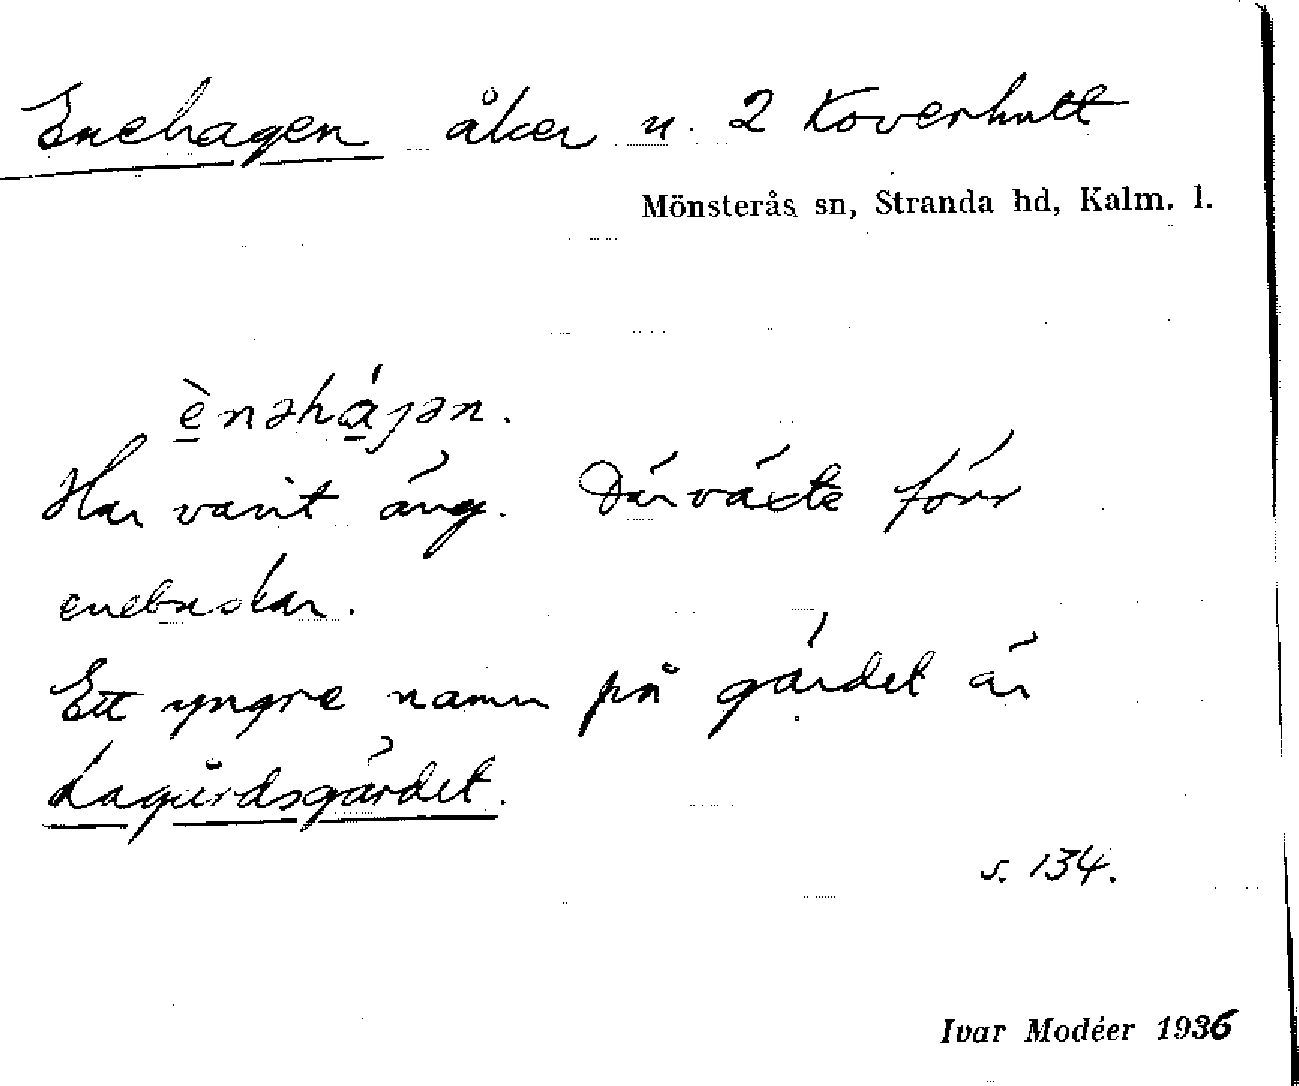 Enehagen åker n. 2 Koverhult
Mönsterås sn, Stranda hd, Kalm. l.
ènəhájən.
Har varit äng. Där växte förr
enebuskar.
Ett yngre namn på gärdet är
Lagårdsgärdet.
s. 134.
Ivar Modéer 1936